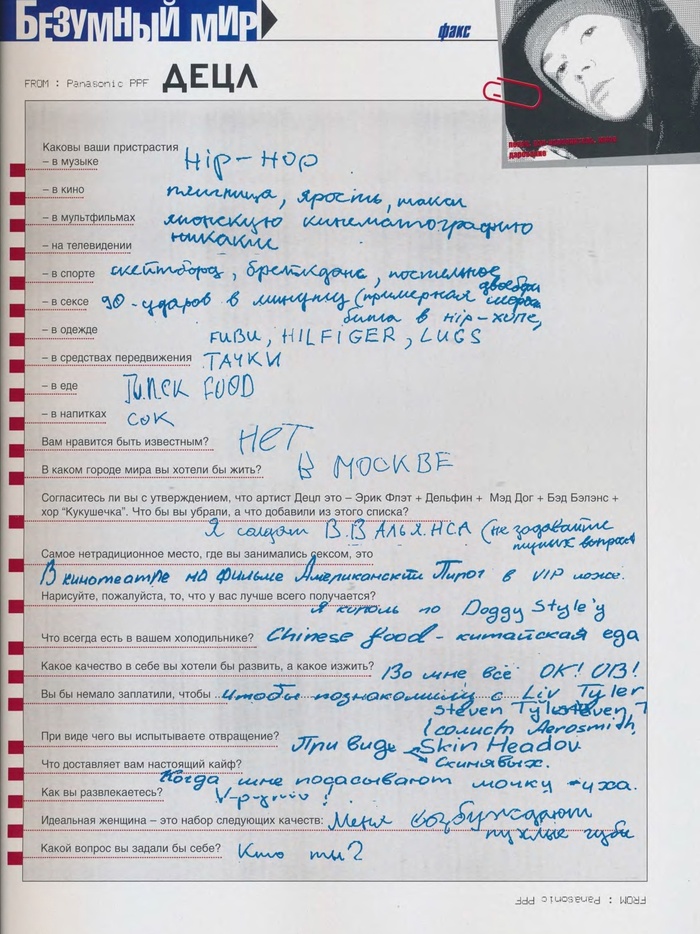 БЕЗУМНЫЙ МИР
факс
FROM : Panasonic PPF ДЕЦЛ
Каковы ваши пристрастия
– в музыке Hip-Hop
– в кино пятница, ярость, такси
– в мультфильмах японскую кинематографию
– на телевидении никакие
– в спорте скейтборд, брейкданс, постельное двоебори
– в сексе 90-ударов в минуту (примерная
бита в hip-хопе,
– в одежде FUBU, HILFIGER, LUGS
– в средствах передвижения ТАЧКИ
– в еде FOOD
– в напитках СОК
Вам нравится быть известным? НЕТ
В каком городе мира вы хотели бы жить? В МОСКВЕ
Согласитесь ли вы с утверждением, что артист Децл это – Эрик Флэт + Дельфин + Мэд Дог + Бэд Бэлэнс +
хор "Кукушечка". Что бы вы убрали, а что добавили из этого списка?
Я солдат В.В АЛЬЯНСА (не задавайте
глупых вопросов
Самое нетрадиционное место, где вы занимались сексом, это
В кинотеатре на фильме Американский Пирог в VIP ложе.
Нарисуйте, пожалуйста, то, что у вас лучше всего получается?
Я король по Doggy Style'у
Что всегда есть в вашем холодильнике? Chinese food - китайская еда
Какое качество в себе вы хотели бы развить, а какое изжить? Во мне всё OK! OB!
Вы бы немало заплатили, чтобы чтобы познакомили с Liv Tyler
Steven Tyler
(солист Aerosmith,
При виде чего вы испытываете отвращение? При виде Skin Headov
Скинявых.
Что доставляет вам настоящий кайф?
Когда мне посасывают мочку уха.
Как вы развлекаетесь?
Идеальная женщина – это набор следующих качеств: Меня возбуждают
пухлые губы
Какой вопрос вы задали бы себе? Кто ты?
FROM : Panasonic PPF